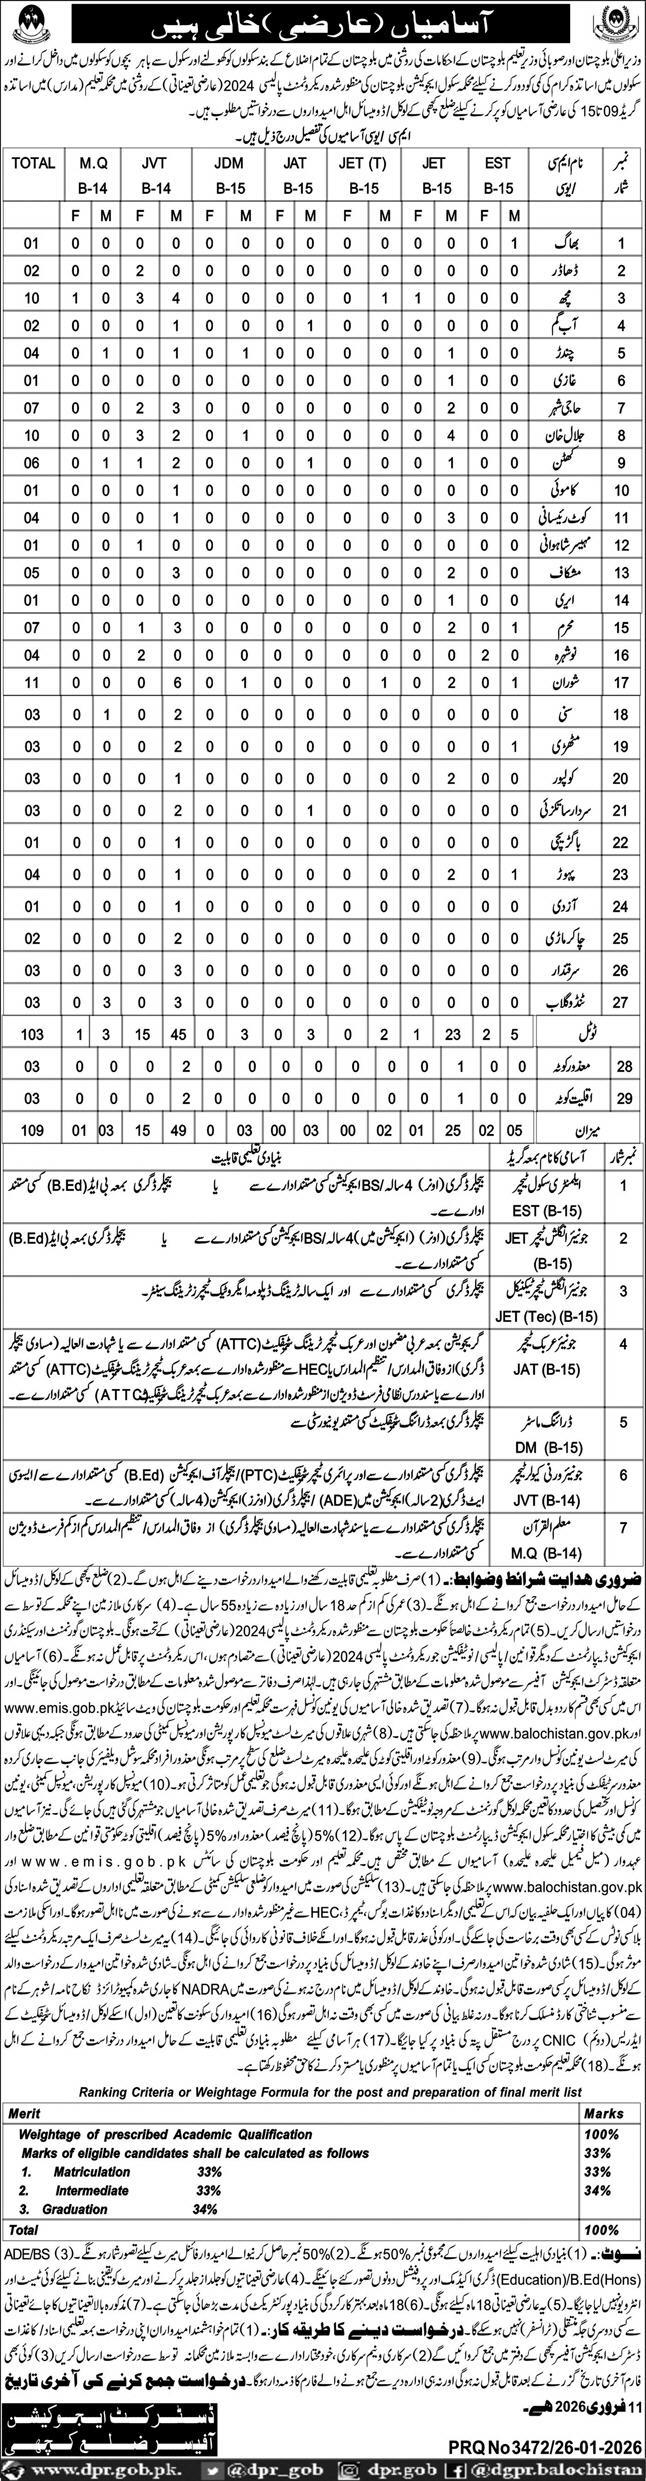 آسامیاں (عارضی) خالی ہیں
وزیراعلیٰ بلوچستان اور صوبائی وزیر تعلیم بلوچستان کے احکامات کی روشنی میں بلوچستان کے تمام اضلاع کے بند سکولوں کو کھولنے اور سکول سے باہر بچوں کو سکولوں میں داخل کرانے اور
سکولوں میں اساتذہ کرام کی کمی کو دور کرنے کیلئے محکمہ سکول ایجوکیشن بلوچستان کی منظور شدہ ریکروٹمنٹ پالیسی 2024 (عارضی تعیناتی) کے روشنی میں محکمہ تعلیم (مدارس) میں اساتذہ
گریڈ 09 تا 15 کی عارضی آسامیوں کو پر کرنے کیلئے ضلع کچھی کے لوکل/ڈومیسائل اہل امیدواروں سے درخواستیں مطلوب ہیں۔
ایم سی/یوسی آسامیوں کی تفصیل درج ذیل ہیں۔
نمبر شمار نام ایم سی/یوسی EST B-15 JET B-15 JET (T) B-15 JAT B-15 JDM B-15 JVT B-14 M.Q B-14 TOTAL
M F M F M F M F M F M F M F
1 بھاگ 1 0 0 0 0 0 0 0 0 0 0 0 0 0 01
2 ڈھاڈر 0 0 0 0 0 0 0 0 0 0 0 2 0 0 02
3 مچھ 0 0 0 1 1 0 0 0 0 0 4 3 0 1 10
4 آب گم 0 0 0 0 0 0 1 0 0 0 1 0 0 0 02
5 چندڑ 0 0 1 0 0 0 0 0 1 0 1 0 1 0 04
6 غازی 0 0 1 0 0 0 0 0 0 0 0 0 0 0 01
7 حاجی شہر 0 0 2 0 0 0 0 0 0 0 3 2 0 0 07
8 جلال خان 0 0 4 0 0 0 0 0 1 0 2 3 0 0 10
9 کھٹن 0 0 1 0 0 0 1 0 0 0 2 1 1 0 06
10 کاموئی 0 0 0 0 0 0 0 0 0 0 1 0 0 0 01
11 کوٹ رئیسانی 0 0 3 0 0 0 0 0 0 0 1 0 0 0 04
12 مہیسر شاہوانی 0 0 0 0 0 0 0 0 0 0 0 1 0 0 01
13 مشکاف 0 0 2 0 0 0 0 0 0 0 3 0 0 0 05
14 ایری 0 0 1 0 0 0 0 0 0 0 0 0 0 0 01
15 محرم 1 0 2 0 0 0 0 0 0 0 3 1 0 0 07
16 نوشہرہ 0 2 0 0 0 0 0 0 0 0 0 2 0 0 04
17 شوران 1 0 2 0 1 0 0 0 1 0 6 0 0 0 11
18 سنی 0 0 0 0 0 0 0 0 0 0 2 0 1 0 03
19 مٹھڑی 1 0 0 0 0 0 0 0 0 0 2 0 0 0 03
20 کولپور 0 0 2 0 0 0 0 0 0 0 1 0 0 0 03
21 سردار ساتکزئی 0 0 0 0 0 0 1 0 0 0 2 0 0 0 03
22 باگڑیچی 0 0 0 0 0 0 0 0 0 0 1 0 0 0 01
23 پہوڑ 1 0 2 0 0 0 0 0 0 0 1 0 0 0 04
24 آزدی 0 0 0 0 0 0 0 0 0 0 1 0 0 0 01
25 چاکر ماڑی 0 0 0 0 0 0 0 0 0 0 2 0 0 0 02
26 سرقندار 0 0 0 0 0 0 0 0 0 0 3 0 0 0 03
27 ٹنڈو گلاب 0 0 0 0 0 0 0 0 0 0 3 0 3 0 03
ٹوٹل 5 2 23 1 2 0 3 0 3 0 45 15 3 1 103
28 معذور کوٹہ 0 0 1 0 0 0 0 0 0 0 2 0 0 0 03
29 اقلیت کوٹہ 0 0 1 0 0 0 0 0 0 0 2 0 0 0 03
میزان 05 02 25 01 02 00 03 00 03 0 49 15 03 01 109
نمبر شمار آسامی کا نام بمعہ گریڈ بنیادی تعلیمی قابلیت
1 ایلمنٹری سکول ٹیچر EST (B-15) بیچلر ڈگری (اونرز) 4 سالہ/BS ایجوکیشن کسی مستند ادارے سے یا بیچلر ڈگری بمعہ بی ایڈ (B.Ed) کسی مستند
ادارے سے۔
2 جونیئر انگلش ٹیچر JET (B-15) بیچلر ڈگری (اونرز) (ایجوکیشن میں) 4 سالہ/BS ایجوکیشن کسی مستند ادارے سے یا بیچلر ڈگری بمعہ بی ایڈ (B.Ed)
کسی مستند ادارے سے۔
3 جونیئر انگلش ٹیچر ٹیکنیکل JET (Tec) (B-15) بیچلر ڈگری کسی مستند ادارے سے اور ایک سالہ ٹریننگ ڈپلومہ ایگروٹیک ٹیچرز ٹریننگ سینٹر۔
4 جونیئر عربک ٹیچر JAT (B-15) گریجویشن بمعہ عربی مضمون اور عربک ٹیچر ٹریننگ سرٹیفکیٹ (ATTC) کسی مستند ادارے سے یا شہادت العالیہ (مساوی بیچلر
ڈگری) از وفاق المدارس/تنظیم المدارس یا HEC سے منظور شدہ ادارے سے بمعہ عربک ٹیچر ٹریننگ سرٹیفکیٹ (ATTC) کسی مستند
ادارے سے یا سند درس نظامی فرسٹ ڈویژن از منظور شدہ ادارے سے بمعہ عربک ٹیچر ٹریننگ سرٹیفکیٹ (ATTC) کسی مستند ادارے سے۔
5 ڈرائنگ ماسٹر DM (B-15) بیچلر ڈگری بمعہ ڈرائنگ سرٹیفکیٹ کسی مستند یونیورسٹی سے
6 جونیئر ورنی کیولر ٹیچر JVT (B-14) بیچلر ڈگری کسی مستند ادارے سے اور پرائمری ٹیچر سرٹیفکیٹ (PTC)/بیچلر آف ایجوکیشن (B.Ed) کسی مستند ادارے سے/ایسوسی
ایٹ ڈگری (2 سالہ) ایجوکیشن میں (ADE)/بیچلر ڈگری (اونرز) ایجوکیشن (4 سالہ) کسی مستند ادارے سے۔
7 معلم القرآن M.Q (B-14) بیچلر ڈگری کسی مستند ادارے سے یا سند شہادت العالیہ (مساوی بیچلر ڈگری) از وفاق المدارس/تنظیم المدارس کم از کم فرسٹ ڈویژن
کسی مستند ادارے سے۔
ضروری ہدایت شرائط و ضوابط:۔ (1) صرف مطلوبہ تعلیمی قابلیت رکھنے والے امیدوار درخواست دینے کے اہل ہوں گے۔ (2) ضلع کچھی کے لوکل/ڈومیسائل
کے حامل امیدوار درخواست جمع کروانے کے اہل ہونگے۔ (3) عمر کی کم از کم حد 18 سال اور زیادہ سے زیادہ 55 سال ہے۔ (4) سرکاری ملازمین اپنے محکمہ کے توسط سے
درخواستیں ارسال کریں۔ (5) تمام ریکروٹمنٹ خالصتاً حکومت بلوچستان سے منظور شدہ ریکروٹمنٹ پالیسی 2024 (عارضی تعیناتی) کے تحت ہوگی۔ بلوچستان گورنمنٹ اور سیکنڈری
ایجوکیشن ڈیپارٹمنٹ کے دیگر قوانین/پالیسی/نوٹیفکیشن جو ریکروٹمنٹ پالیسی 2024 (عارضی تعیناتی) سے متصادم ہوں، اس ریکروٹمنٹ پر قابل عمل نہ ہونگے۔ (6) آسامیاں
متعلقہ ڈسٹرکٹ ایجوکیشن آفیسر سے موصول شدہ معلومات کے مطابق مشتہر کی جارہی ہیں۔ لہٰذا صرف دفاتر سے موصول شدہ معلومات کے مطابق درخواست موصول کی جائینگی۔ اور
اس میں کسی بھی قسم کا ردوبدل قابل قبول نہ ہوگا۔ (7) تصدیق شدہ خالی آسامیوں کی یونین کونسل فہرست محکمہ تعلیم اور حکومت بلوچستان کی ویب سائیڈ www.emis.gob.pk
اور www.balochistan.gov.pk پر ملاحظہ کی جاسکتی ہیں۔ (8) شہری علاقوں کی میرٹ لسٹ میونسپل کارپوریشن اور میونسپل کمیٹی کی حدود کے مطابق ہونگی جبکہ دیہی علاقوں
کی میرٹ لسٹ یونین کونسل وار مرتب ہونگی۔ (9) معذور کوٹہ اور اقلیتی کوٹہ کی علیحدہ علیحدہ میرٹ لسٹ ضلع کی سطح پر مرتب ہوگی معذور افراد محکمہ سوشل ویلفیئر کی جانب سے جاری کردہ
معذور سرٹیفکیٹ کی بنیاد پر درخواست جمع کروانے کے اہل ہونگے اور کوئی ایسی معذوری قابل قبول نہ ہوگی جو تعلیمی عمل کو متاثر کرتی ہو۔ (10) میونسپل کارپوریشن، میونسپل کمیٹی، یونین
کونسل اور تحصیل کی حدود کا تعین محکمہ لوکل گورنمنٹ کے مروجہ نوٹیفکیشن کے مطابق ہوگا۔ (11) میرٹ صرف تصدیق شدہ خالی آسامیاں جو مشتہر کی گئی ہیں کی جائے گی۔ نیز آسامیوں
میں کمی بیشی کا اختیار محکمہ سکول ایجوکیشن ڈیپارٹمنٹ بلوچستان کے پاس ہوگا۔ (12) 5% (پانچ فیصد) معذور اور 5% (پانچ فیصد) اقلیتی کوٹہ حکومتی قوانین کے مطابق ضلع وار
عہدوار (میل فیمیل علیحدہ علیحدہ) آسامیوں کے مطابق مختص ہیں۔ محکمہ تعلیم اور حکومت بلوچستان کی سائٹس www.emis.gob.pk اور
www.balochistan.gov.pk پر ملاحظہ کی جاسکتی ہیں۔ (13) سلیکشن کی صورت میں امیدوار کو ضلعی سلیکشن کمیٹی کے مطابق متعلقہ تعلیمی اداروں کے تصدیق شدہ اسناد کی
(04) کاپیاں اور ایک حلفیہ بیان کہ اس کے تعلیمی/دیگر اسناد و کاغذات بوگس، ٹیمپرڈ، HEC سے غیر منظور شدہ ادارے سے ہونے کی صورت میں نااہل تصور ہوگا۔ اور اسکی ملازمت
بلاکسی نوٹس کے کسی بھی وقت برخاست کی جاسکے گی۔ اور کوئی عذر قابل قبول نہ ہوگا۔ اور انکے خلاف قانونی کاروائی کی جائیگی۔ (14) یہ میرٹ لسٹ صرف ایک مرتبہ ریکروٹمنٹ کیلئے
موثر ہوگی۔ (15) شادی شدہ خواتین امیدوار صرف اپنے خاوند کے لوکل/ڈومیسائل کی بنیاد پر درخواست جمع کروانے کی اہل ہونگی۔ شادی شدہ خواتین امیدوار کے درخواست والد
کے لوکل/ڈومیسائل پر کسی صورت قابل قبول نہ ہوگی۔ خاوند کے لوکل/ڈومیسائل میں نام درج نہ ہونے کی صورت میں NADRA کا جاری شدہ کمپیوٹرائزڈ نکاح نامہ/شوہر کے نام
سے منسوب شناختی کارڈ منسلک کرنا ہوگا۔ ورنہ غلط بیانی کی صورت میں کسی بھی وقت نااہل تصور ہوگی (16) امیدوار کی سکونت کا تعین (اول) اسکے لوکل/ڈومیسائل سرٹیفکیٹ کے
ایڈریس (دوئم) CNIC پر درج مستقل پتہ کی بنیاد پر کیا جائیگا۔ (17) ہر آسامی کیلئے مطلوبہ بنیادی تعلیمی قابلیت کے حامل امیدوار درخواست جمع کروانے کے اہل
ہونگے۔ (18) محکمہ تعلیم حکومت بلوچستان کسی ایک یا تمام آسامیوں پر منظوری یا مسترد کرنے کا حق محفوظ رکھتا ہے۔
Ranking Criteria or Weightage Formula for the post and preparation of final merit list
Merit Marks
Weightage of prescribed Academic Qualification 100%
Marks of eligible candidates shall be calculated as follows 33%
1. Matriculation 33% 33%
2. Intermediate 33% 34%
3. Graduation 34%
Total 100%
نوٹ:۔ (1) بنیادی اہلیت کیلئے امیدواروں کے مجموعی نمبر 50% ہونگے۔ (2) 50% نمبر حاصل کرنیوالے امیدوار فائنل میرٹ کیلئے تصور شمار ہونگے۔ (3) ADE/BS
(Education)/B.Ed(Hons) ڈگری اکیڈمک اور پروفیشنل دونوں تصور کئے جائینگے۔ (4) عارضی تعیناتیوں کو جلد از جلد پر کرنے اور میرٹ کو یقینی بنانے کیلئے کوئی ٹیسٹ اور
انٹرویو نہیں لیا جائیگا۔ (5) یہ عارضی تعیناتی 18 ماہ کیلئے ہوگی۔ (6) 18 ماہ بعد بہتر کارکردگی کی بنیاد پور کنٹریکٹ کی مدت بڑھائی جاسکتی ہے۔ (7) مذکورہ بالا تعیناتیوں کا جائے تعیناتی
سے کسی دوسری جگہ منتقلی (ٹرانسفر) نہیں ہوسکے گا۔ درخواست دینے کا طریقہ کار:۔ (1) تمام خواہشمند امیدواران اپنی درخواست بمعہ تعلیمی اسناد/کاغذات
ڈسٹرکٹ ایجوکیشن آفیسر کچھی کے دفتر میں جمع کروائیں گے (2) سرکاری و نیم سرکاری، خود مختار ادارے سے وابستہ ملازمین محکمانہ توسط سے درخواست ارسال کریں (3) کوئی بھی
فارم آخری تاریخ گزرنے کے بعد قابل قبول نہ ہوگی اور نہ ہی ادارہ دیر سے جمع ہونے والے فارم کا ذمہ دار ہوگا۔ درخواست جمع کرنے کی آخری تاریخ
11 فروری 2026 ہے۔
ڈسٹرکٹ ایجوکیشن
آفیسر ضلع کچھی
PRQ No 3472/26-01-2026
www.dpr.gob.pk. @dpr_gob dpr.gob @dgpr.balochistan